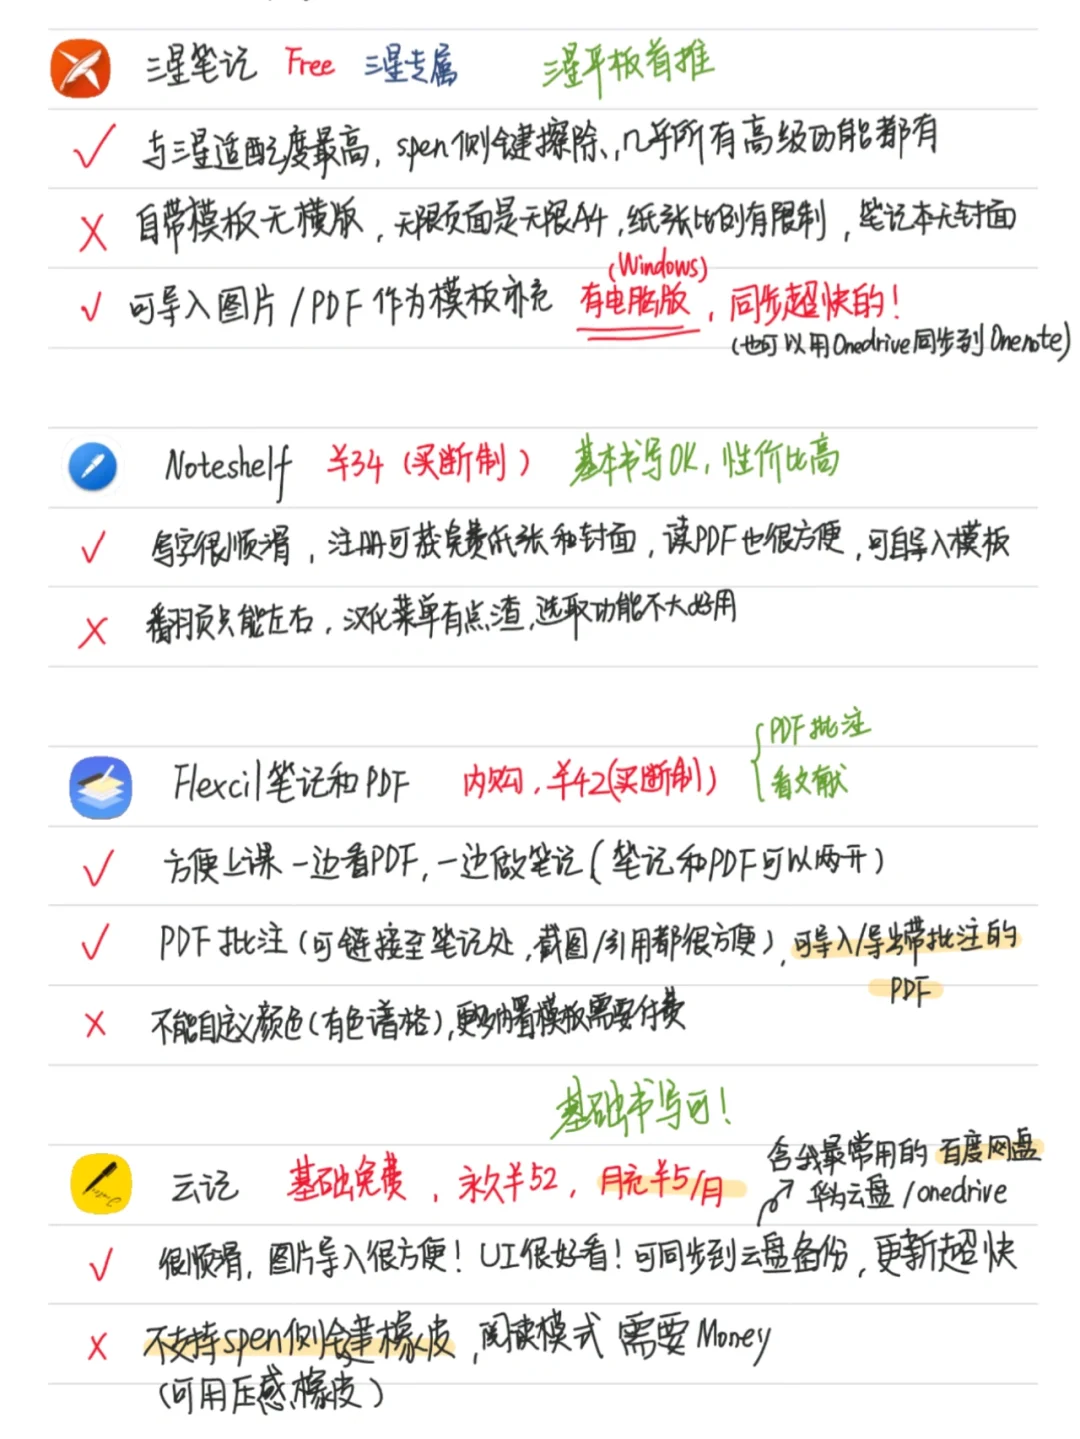 三星笔记 Free 三星专属 三星平板首推
与三星适配度最高，spen侧键擦除、几乎所有高级功能都有
自带模板无横版，无限页面是无限A4，纸张比例有限制，笔记本无封面
(Windows)
可导入图片/PDF作为模板补充 有电脑版，同步超快的！
(也可以用Onedrive同步到Onenote)
Noteshelf ¥34（买断制） 基本书写OK，性价比高
写字很顺滑，注册可获免费纸张和封面，读PDF也很方便，可自导入模板
翻页只能左右，汉化菜单有点渣，选取功能不大好用
PDF批注
Flexcil笔记和PDF 内购，¥42(买断制)
看文献
方便上课一边看PDF，一边做笔记(笔记和PDF可以两开)
PDF批注(可链接至笔记处，截图/引用都很方便)，可导入/导出带批注的
PDF
不能自定义颜色(有色谱格)，更多内置模板需要付费
基础书写可！
含我最常用的百度网盘
云记 基础免费，永久¥52，月充¥5/月
华为云盘/onedrive
很顺滑，图片导入很方便！UI很好看！可同步到云盘备份，更新超快
不支持spen侧键橡皮，阅读模式需要Money
(可用压感橡皮)